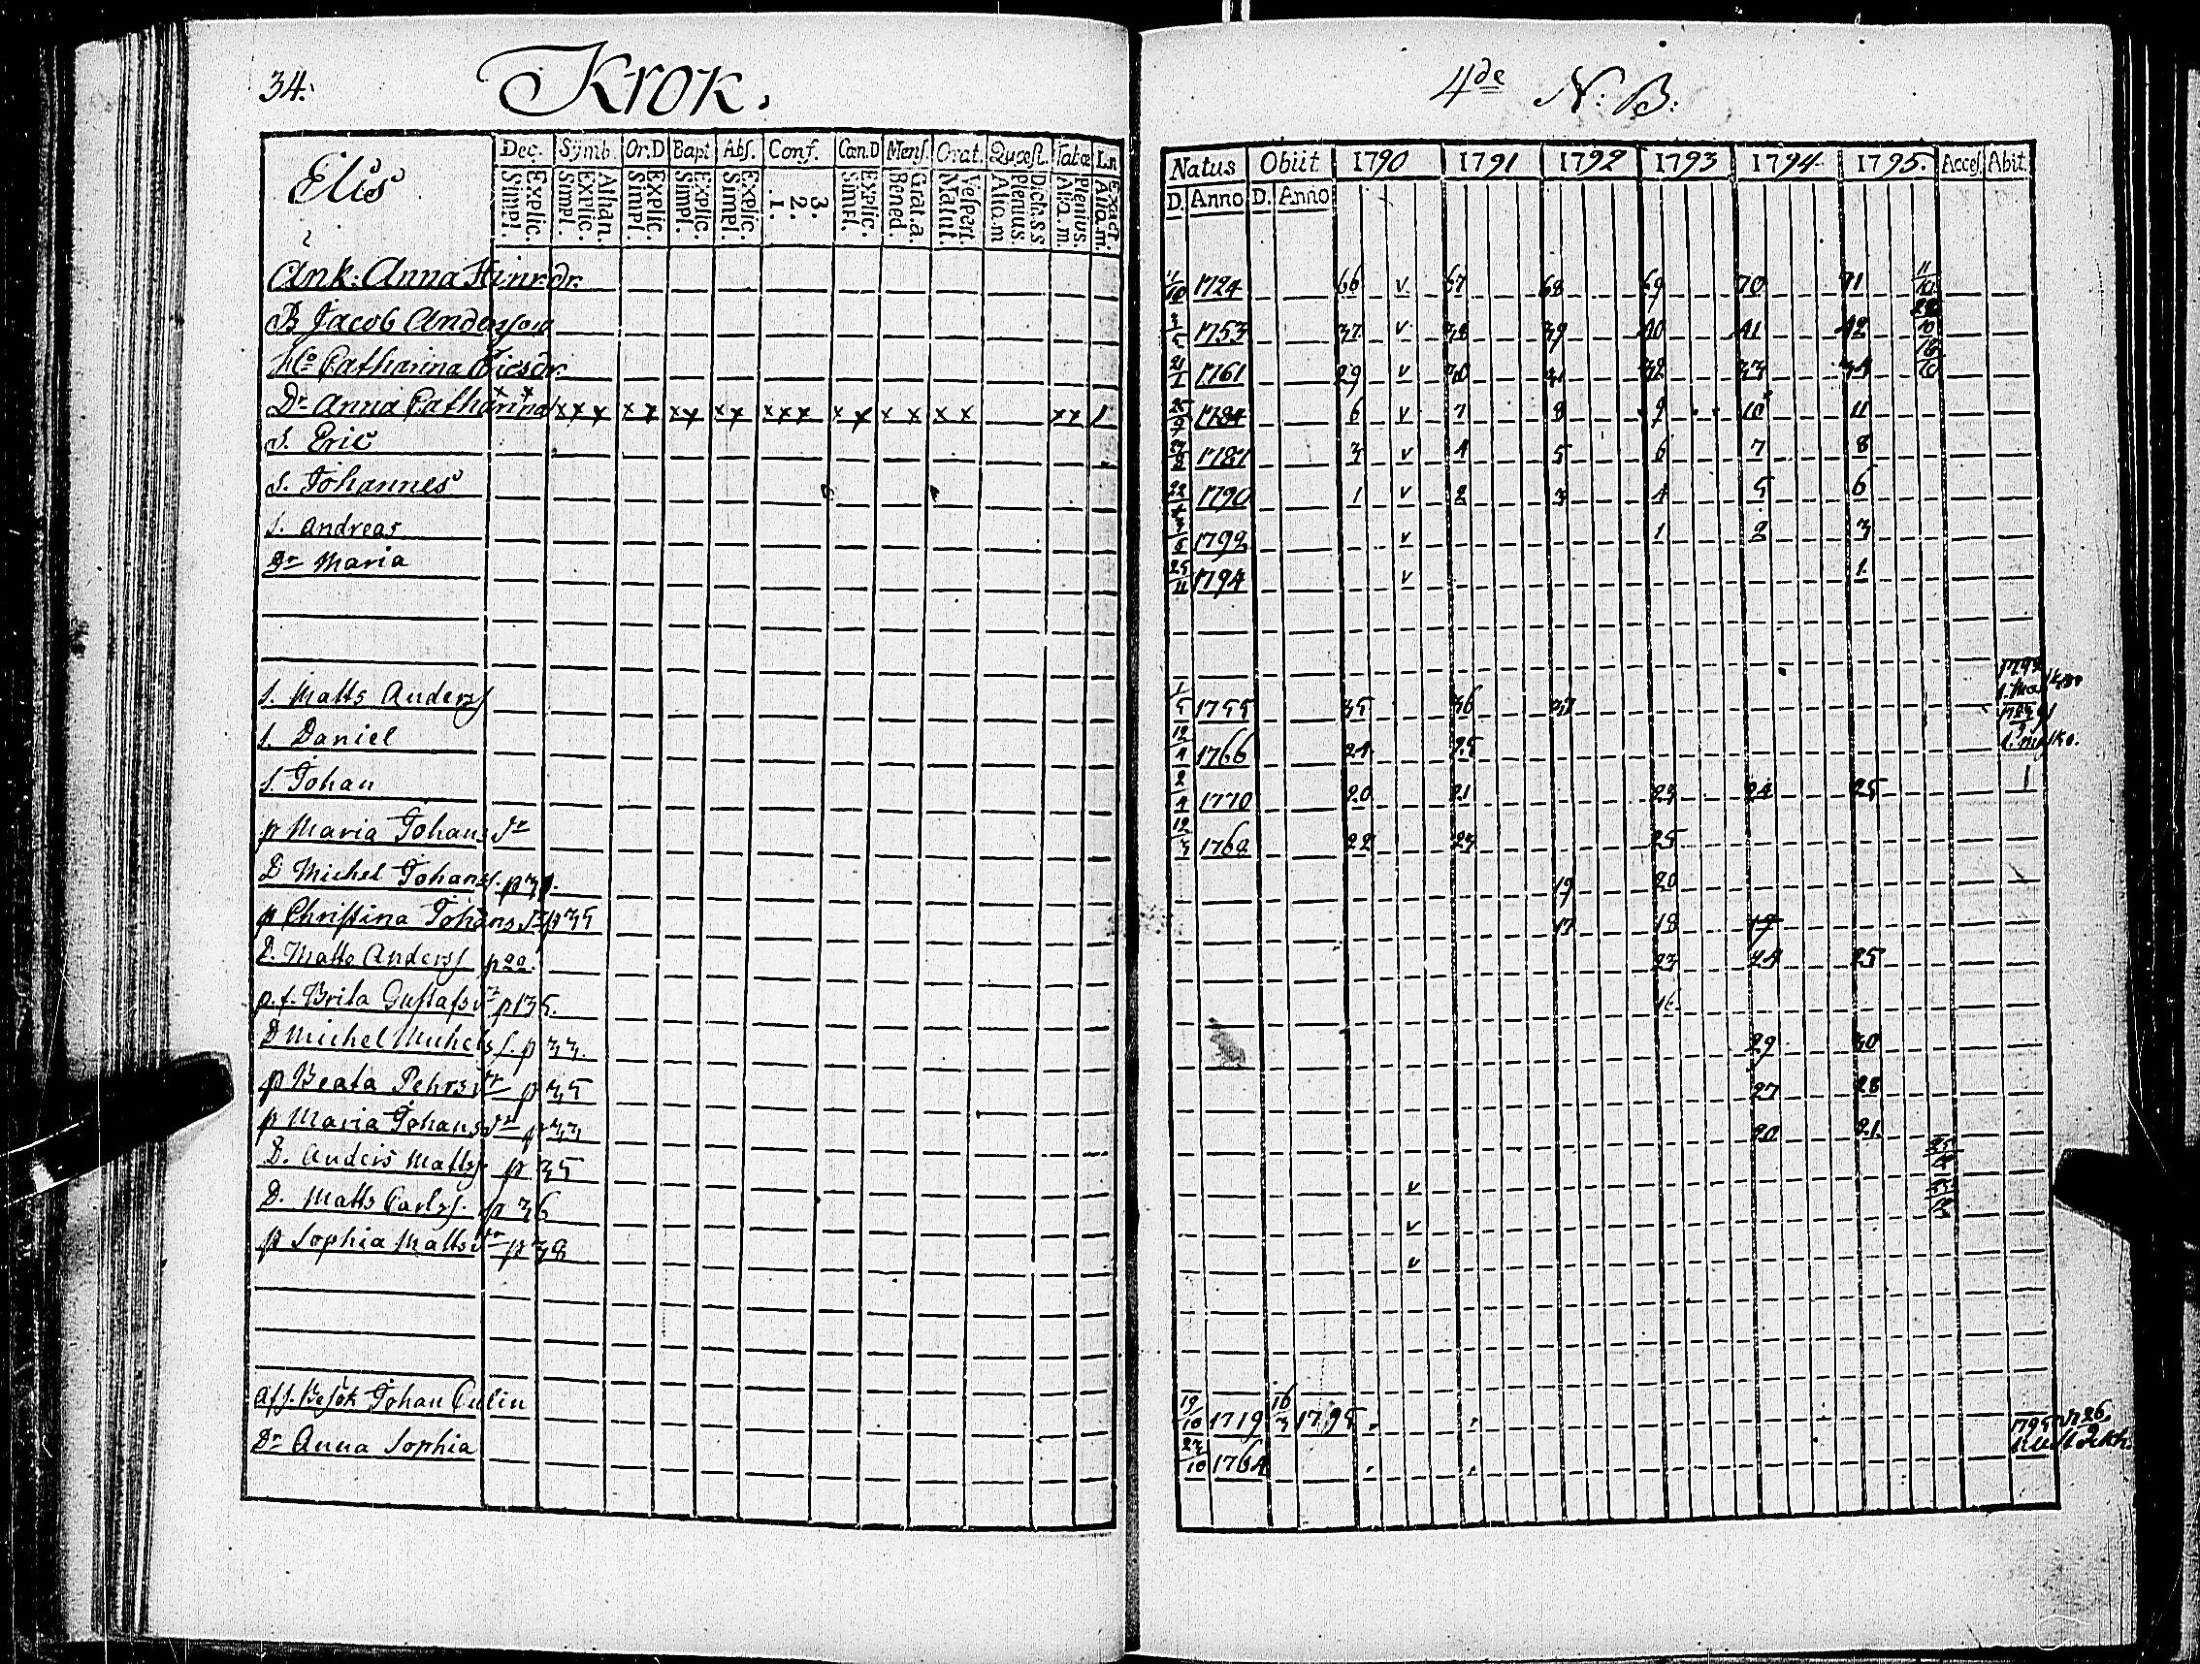 34. Krok.
Elis
Dec. Symb. Or.D Bapt. Abs. Conf. Can.D Mens. Orat. Quæst. Tabæ Ln
Simpl. Explic. Simpl. Explic. Athan. Simpl. Explic. Simpl. Explic. Simpl. Explic. 1. 2. 3. Simpl. Explic. Bened. Grat.a. Matut. Vespert. Alio.m Plenius. Dict.SS Alio.m. Plenius. Alio.m. Exact.
Ank: Anna Hinr:dr.
B Jacob Anderson
H:o Catharina Ericsdr.
Dr Anna Catharina x x x x x x x x x x x x x x x x x x x x x x x x
S. Eric
S. Johannes
S. Andreas
Dr Maria
S. Matts Anders
S. Daniel
S. Johan
p Maria Johansdr
D Michel Johans. p 31.
p Christina Johansdr p 35
D. Matts Anders p 22.
p.f. Brita Gustafsdr p 135.
D Michel Michels f. p 33.
p Beata Pehrsdr p 35
p Maria Johansdr p 33
D. Anders Matts. p 35
D. Matts Carls. p 36
p Sophia Mattsdr p 38
Afs. Besök Johan Culin
Dr Anna Sophia
4de N. B:
Natus Obiit 1790 1791 1792 1793 1794 1795. Acces. Abit.
D. Anno D. Anno
1/10 1724 66 v 67 68 69 70 71 11/10
3/5 1753 37 v 38 39 40 41 42
21/1 1761 29 v 30 31 32 33 34
25/9 1784 6 v 7 8 9 10 11
1787 3 v 4 5 6 7 8
22/4 1790 1 v 2 3 4 5 6
3/6 1792 v 1 2 3
25/11 1794 v 1
1/5 1755 35 36 37
12/4 1766 24 25
2/4 1770 20 21 23 24 25 1
12/3 1768 22 23 25
19 20
17 18 19
23 24 25
16
29 30
27 28
20 21
v
v
v
19/10 1719 16/3 1795
23/10 1764